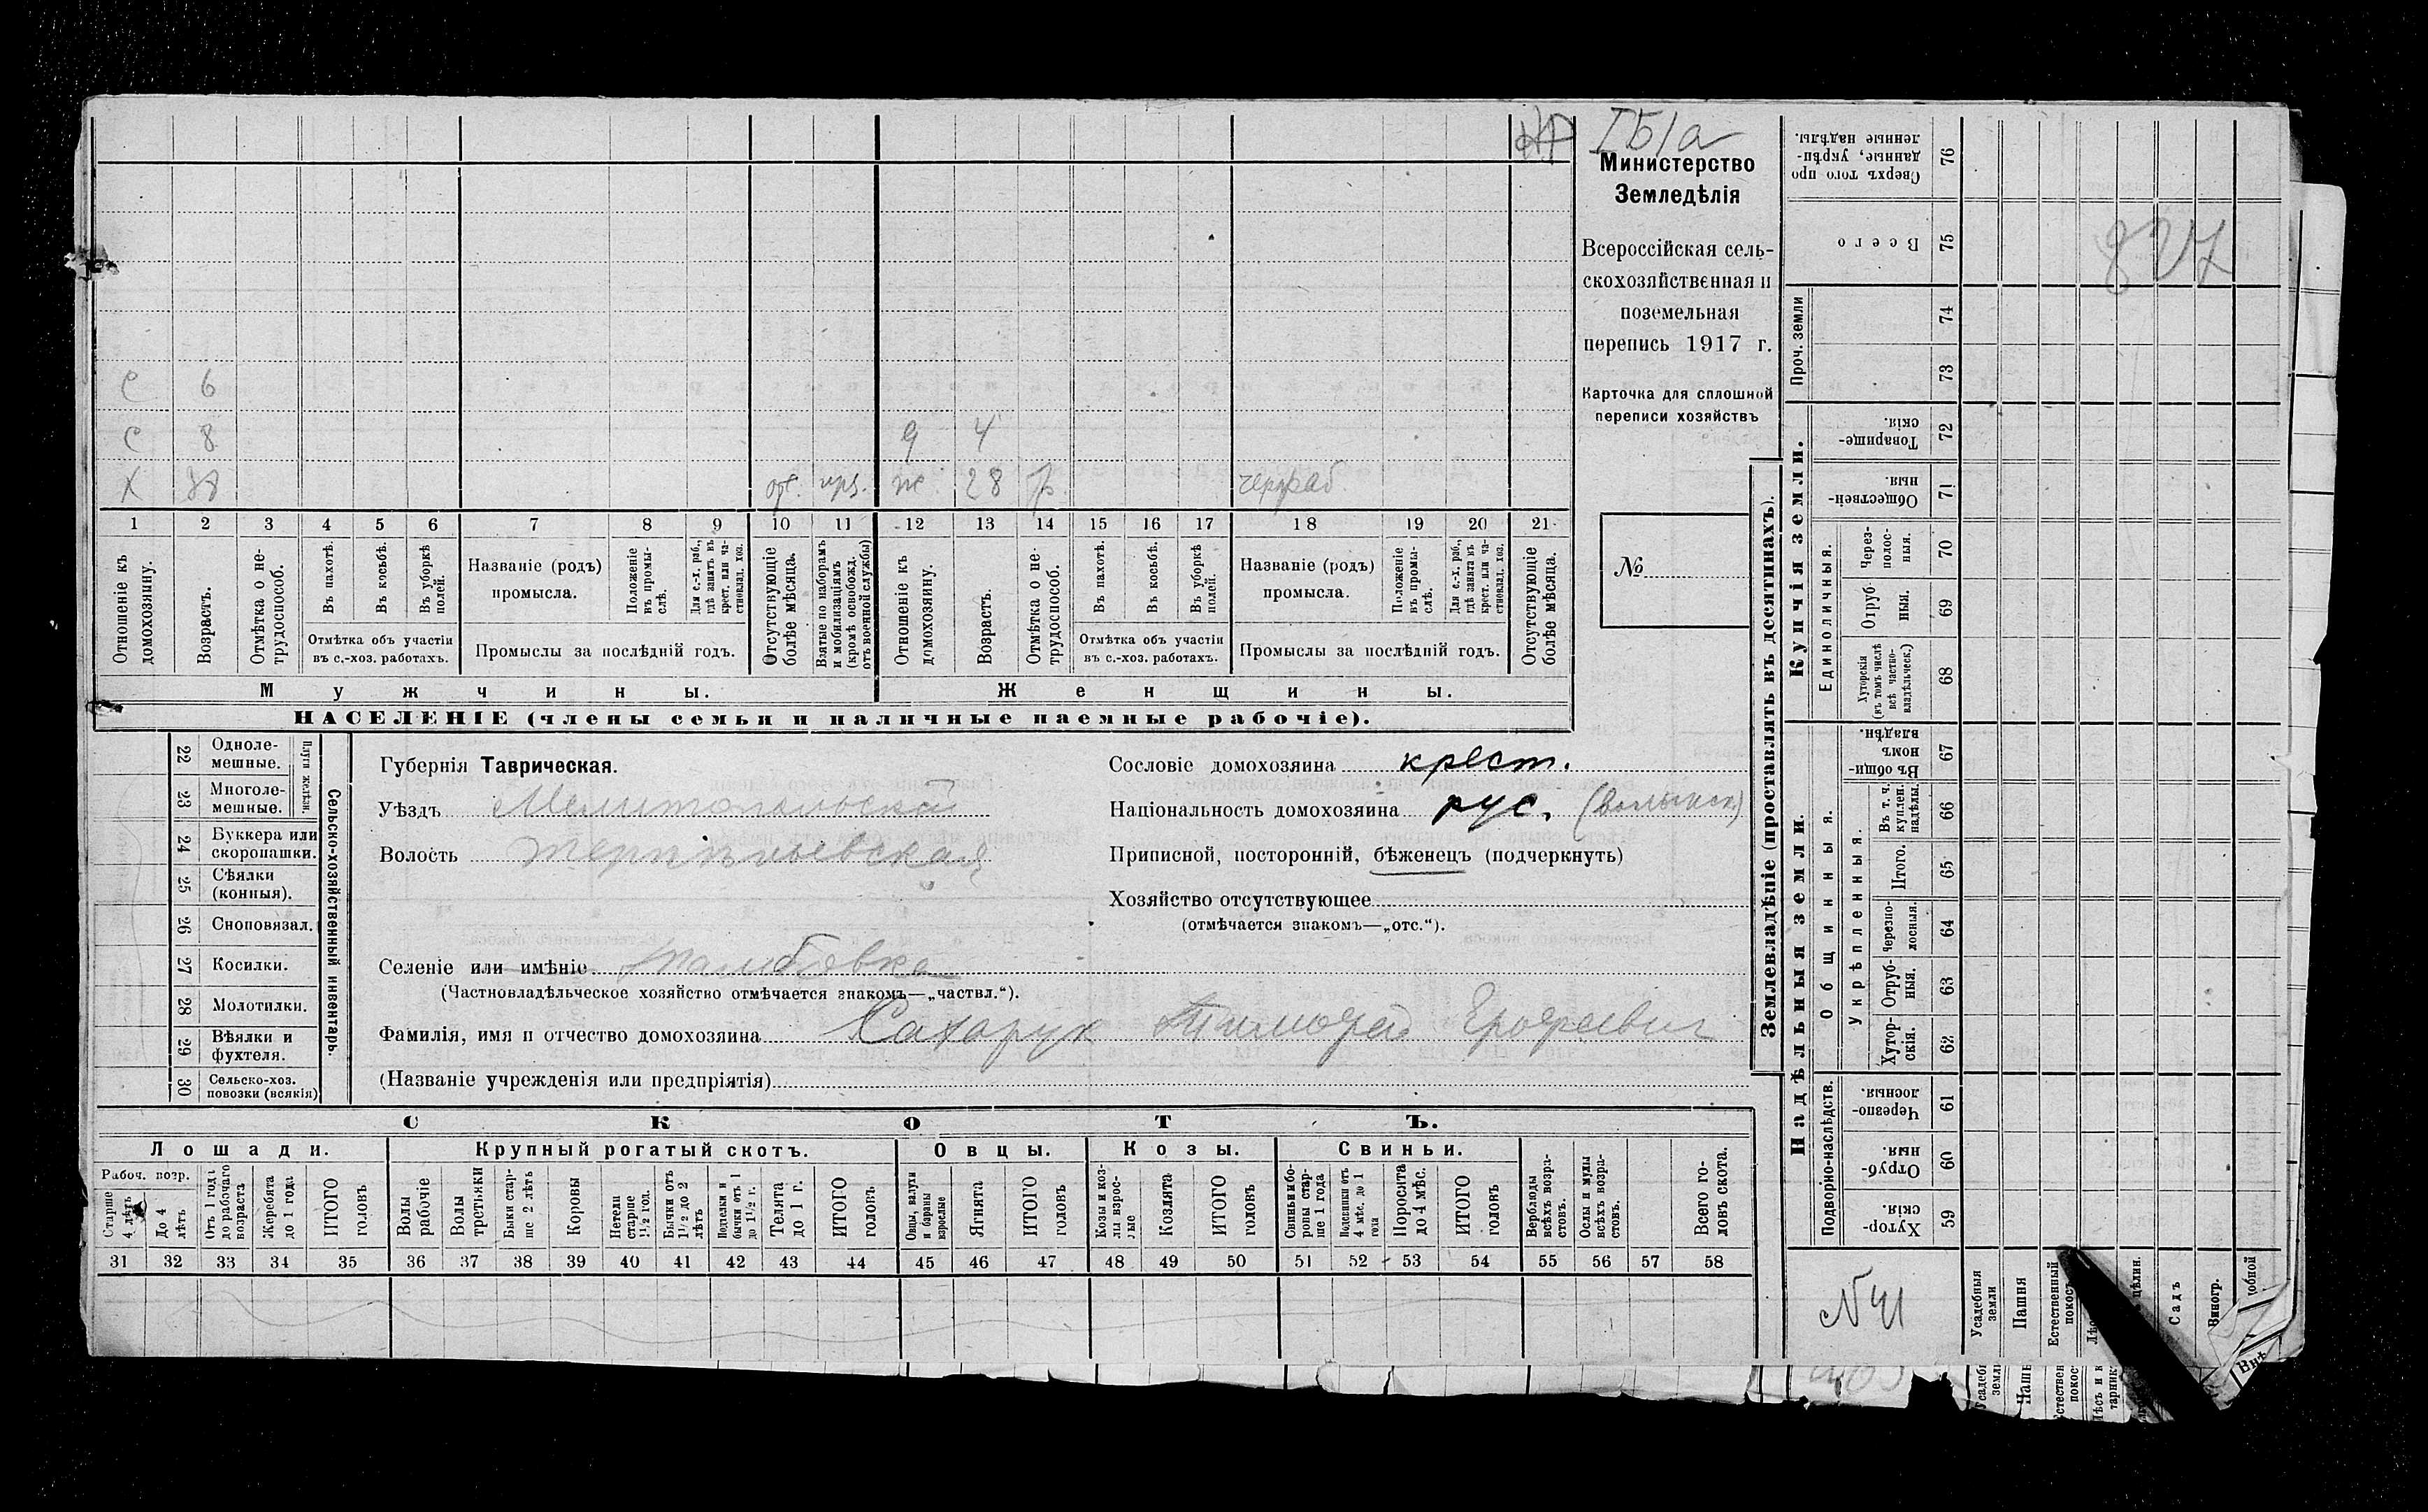 I Б 1 а
Министерство
Земледѣлія
Всероссійская сель-
скохозяйственная и
поземельная
перепись 1917 г.
Карточка для сплошной
переписи хозяйствъ
№
С 6
С 8 д 4
Х 38 отс. ж. 28
1 2 3 4 5 6 7 8 9 10 11 12 13 14 15 16 17 18 19 20 21
Отношеніе къ домохозяину.
Возрастъ.
Отмѣтка о не-трудоспособ.
Въ пахотѣ.
Въ косьбѣ.
Въ уборкѣ полей.
Отмѣтка объ участіи
въ с.-хоз. работахъ.
Названіе (родъ)
промысла.
Положеніе въ промы-слѣ.
Для с.-х. раб., гдѣ занятъ въ крест. или ча-стновлад. хоз.
Промыслы за послѣдній годъ.
Отсутствующіе болѣе мѣсяца.
Взятые по наборамъ и мобилизаціямъ (кромѣ освобожд. отъ военной службы)
Отношеніе къ домохозяину.
Возрастъ.
Отмѣтка о не-трудоспособ.
Въ пахотѣ.
Въ косьбѣ.
Въ уборкѣ полей.
Отмѣтка объ участіи
въ с.-хоз. работахъ.
Названіе (родъ)
промысла.
Положеніе въ промы-слѣ.
Для с.-х. раб., гдѣ занята въ крест. или ча-стновлад. хоз.
Промыслы за послѣдній годъ.
Отсутствующіе болѣе мѣсяца.
Мужчины. Женщины.
НАСЕЛЕНІЕ (члены семьи и наличные наемные рабочіе).
22 Одноле-мешные.
23 Многоле-мешные.
Плуги желѣзн.
24 Буккера или скоропашки.
25 Сѣялки (конныя).
26 Сноповязал.
27 Косилки.
28 Молотилки.
29 Вѣялки и фухтеля.
30 Сельско-хоз. повозки (всякія)
Сельско-хозяйственный инвентарь.
Губернія Таврическая.
Уѣздъ Мелитопольскій
Волость Терпѣньевская
Селеніе или имѣніе
(Частновладѣльческое хозяйство отмѣчается знакомъ—„частвл.“).
Фамилія, имя и отчество домохозяина Сахарук Тимофей Ерофеевич
(Названіе учрежденія или предпріятія)
Сословіе домохозяина крест.
Національность домохозяина рус. (волынск)
Приписной, посторонній, бѣженецъ (подчеркнуть)
Хозяйство отсутствующее
(отмѣчается знакомъ—„отс.“).
СКОТЪ.
Лошади. Крупный рогатый скотъ. Овцы. Козы. Свиньи.
Рабоч. возр.
Старше 4 лѣтъ
До 4 лѣтъ
Отъ 1 года до рабочаго возраста
Жеребята до 1 года
ИТОГО головъ
Волы рабочіе
Волы третьяки
Быки стар-ше 2 лѣтъ
Коровы
Нетели старше 1½ год.
Бычки отъ 1½ до 2 лѣтъ
Подтелки и бычки отъ 1 до 1½ г.
Телята до 1 г.
ИТОГО головъ
Овцы, валухи и бараны взрослые
Ягнята
ИТОГО головъ
Козы и коз-лы взрос-лые
Козлята
ИТОГО головъ
Свиньи и бо-ровы стар-ше 1 года
Подсвинки отъ 4 мѣс. до 1 года
Поросята до 4 мѣс.
ИТОГО головъ
Верблюды всѣхъ возра-стовъ.
Ослы и мулы всѣхъ возра-стовъ.
Всего го-ловъ скота.
31 32 33 34 35 36 37 38 39 40 41 42 43 44 45 46 47 48 49 50 51 52 53 54 55 56 57 58
Землевладѣніе (проставлять въ десятинахъ).
Надѣльныя земли. Купчія земли. Проч. земли
Подворно-наслѣдств.
Общинныя.
Укрѣпленныя.
Единоличныя.
Сверхъ того про данные, укрѣп-ленные надѣлы. 76
Всего 75
74
73
Товарище-скія. 72
Обществен-ныя. 71
Через-полос-ныя. 70
Отруб ныя. 69
Хуторскія (въ томъ числѣ всѣ частно-владѣльческ.) 68
Въ общин-номъ владѣн. 67
Въ т. ч. куплен. надѣлы. 66
Итого. 65
Черезпо-лосныя. 64
Отруб-ныя. 63
Хутор-скія. 62
Черезпо-лосныя. 61
Отруб-ныя. 60
Хутор-скія. 59
827
№ 41
Усадебныя земли
Пашня
Естественный покосъ
цѣлин.
Садъ
Виногр.